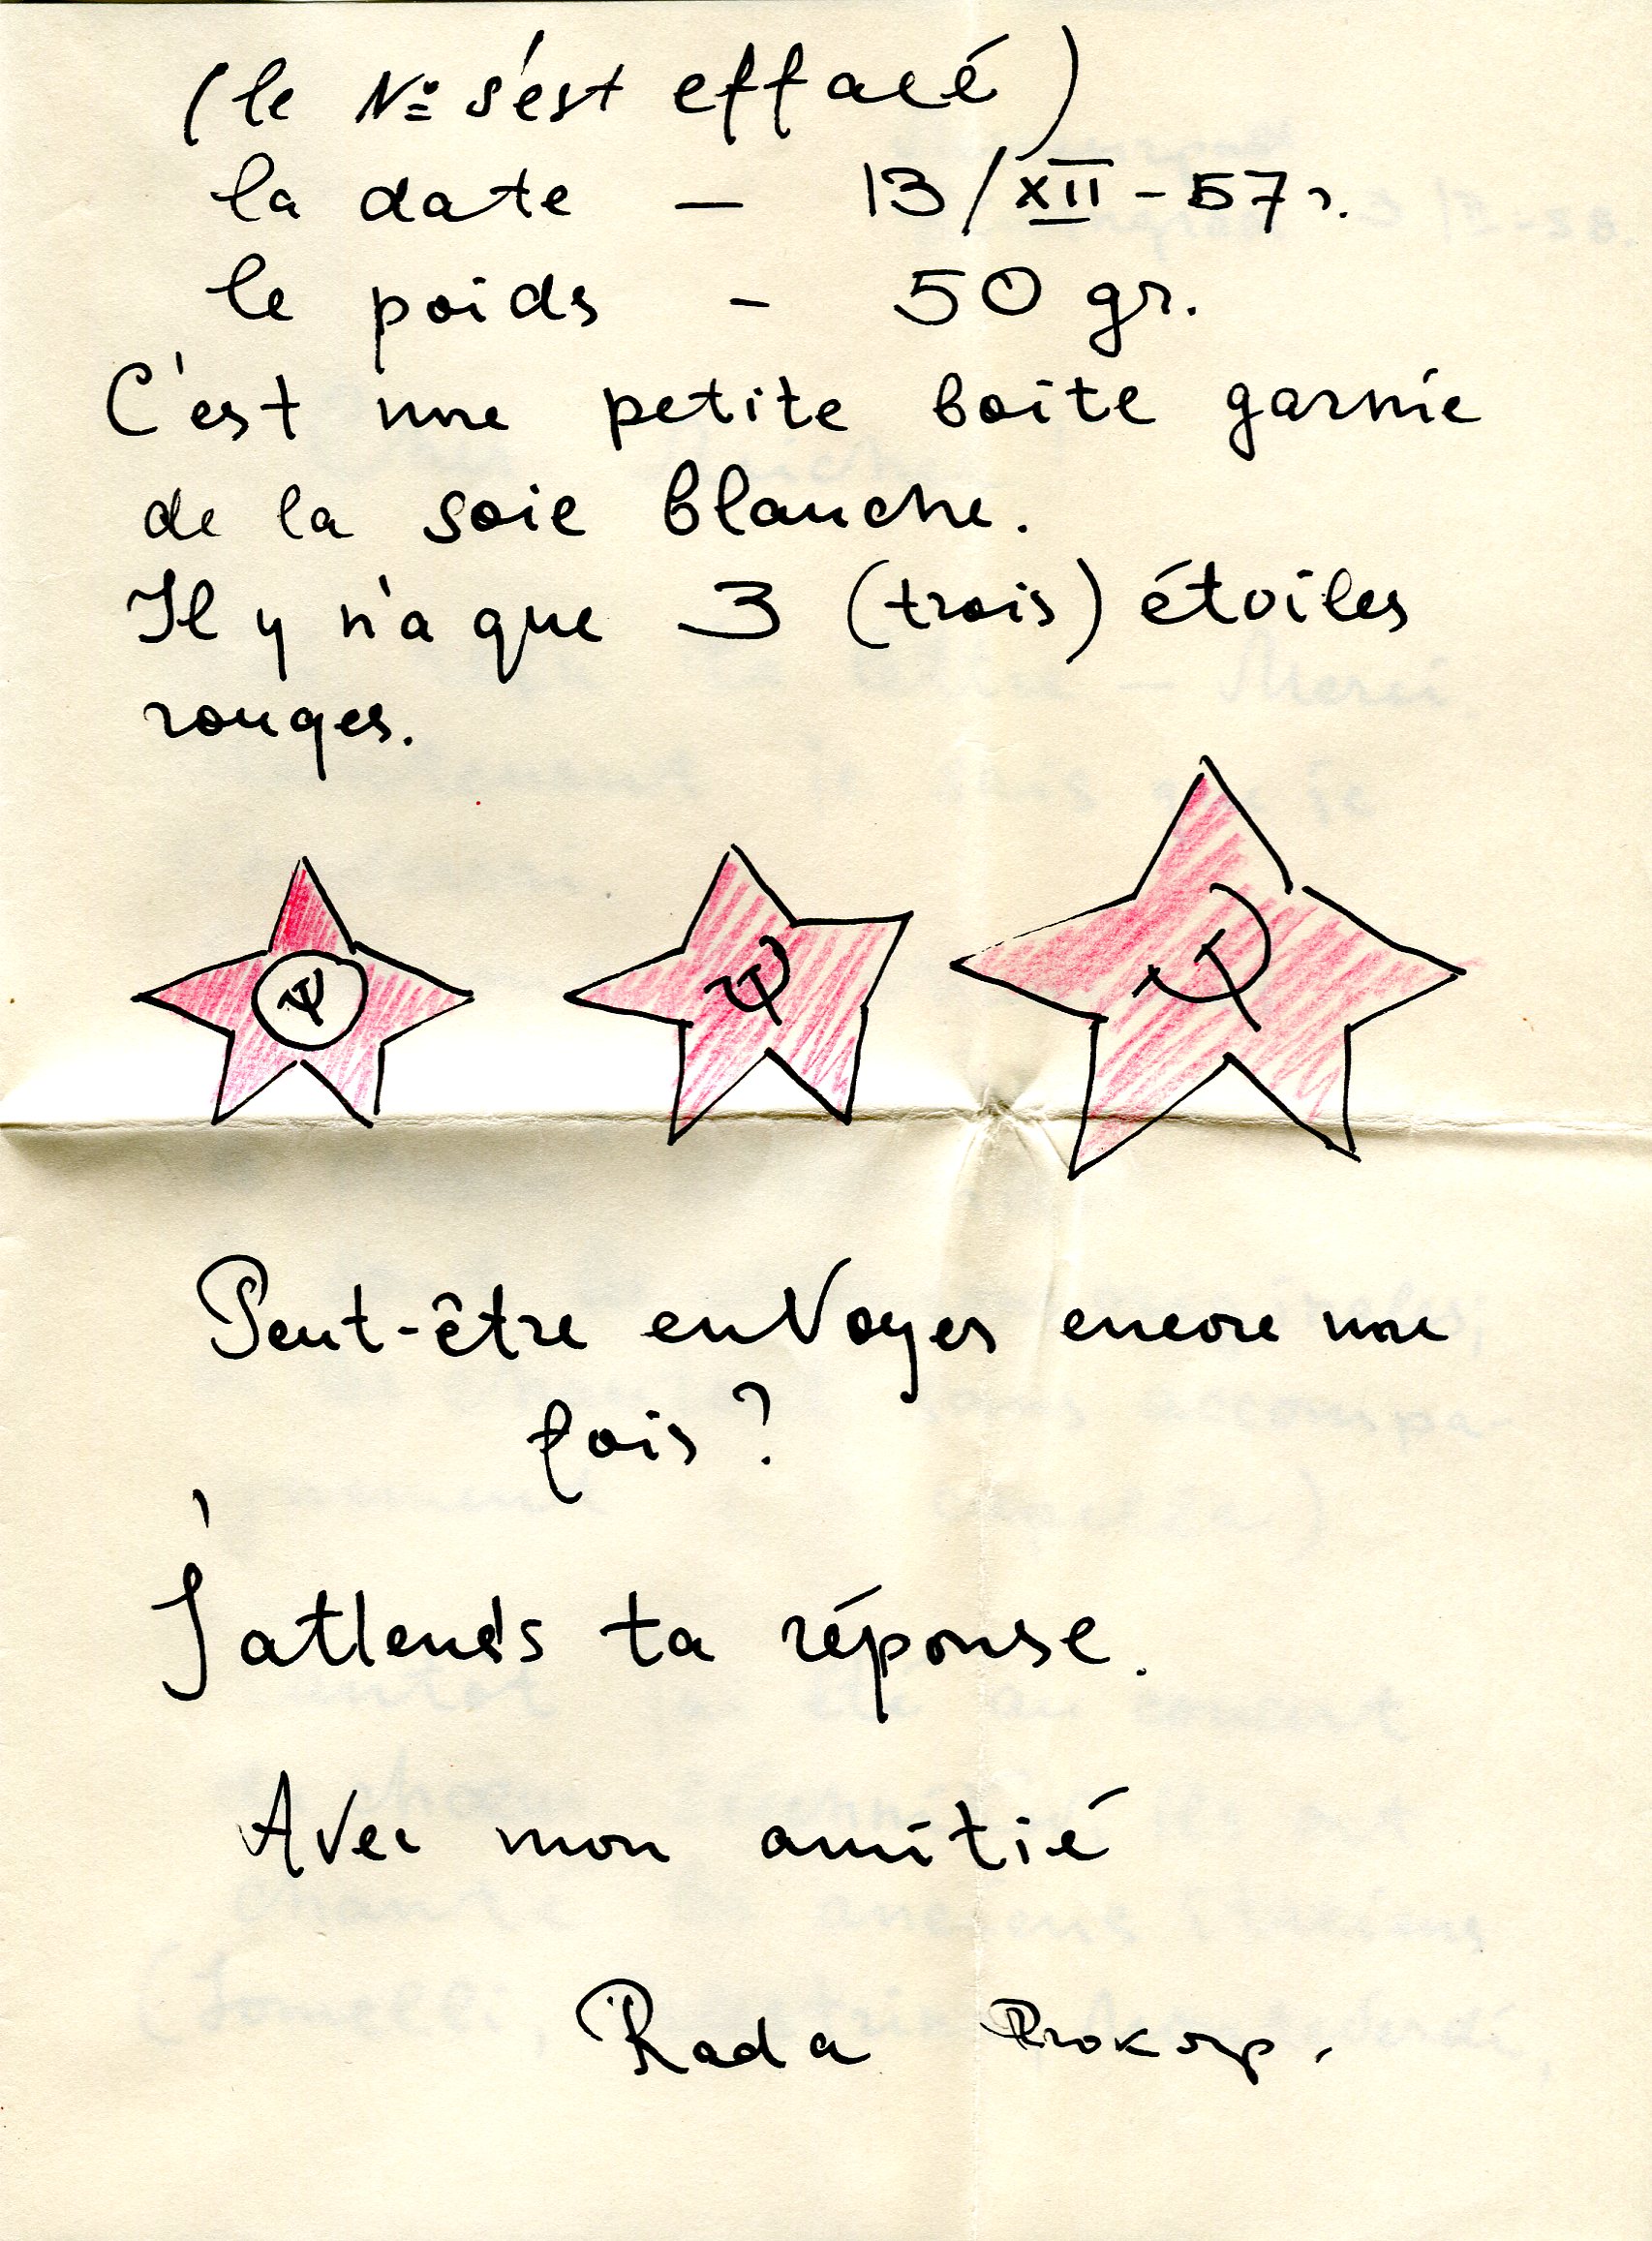 (le № s'est effacé)
la date — 13/XII-57г.
le poids - 50 gr.
C'est une petite boite garnie
de la soie blanche.
Il y n'a que 3 (trois) étoiles
rouges.
Peut-être enVoyer encore une
fois?
J'attends ta réponse.
Avec mon amitié
Rada Prokop.